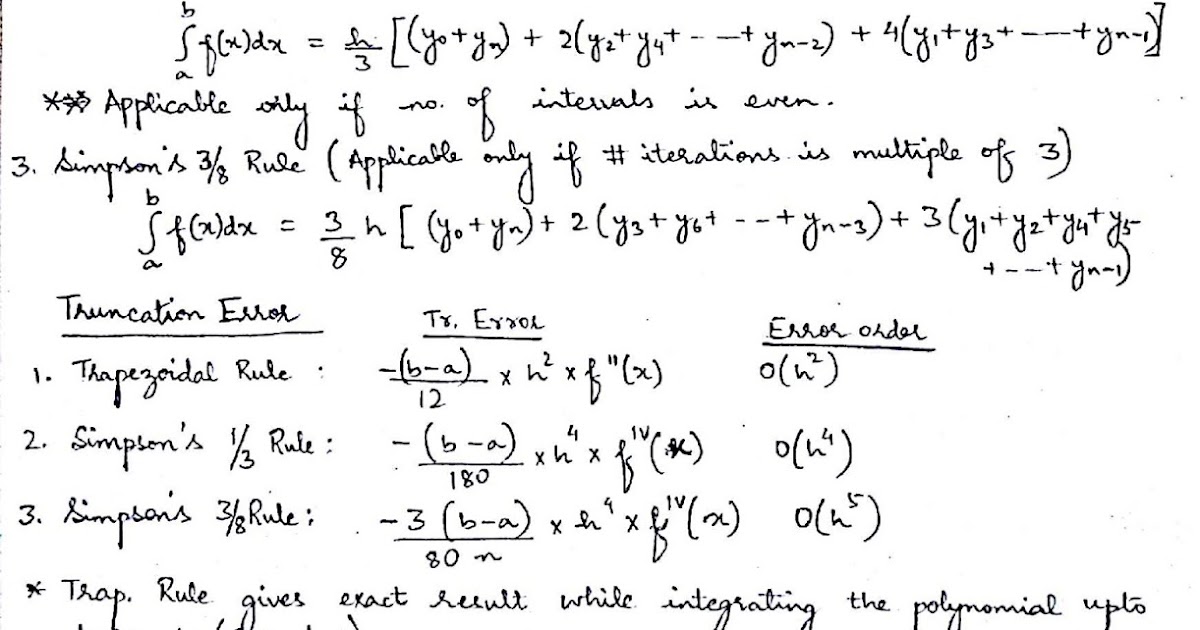 ∫ₐᵇ f(x)dx = h/3 [(y₀+yₙ) + 2(y₂+y₄+ - - +yₙ₋₂) + 4(y₁+y₃+ - - - +yₙ₋₁)]
*** Applicable only if no. of intervals is even.
3. Simpson's 3/8 Rule (Applicable only if # iterations is multiple of 3)
∫ₐᵇ f(x)dx = 3/8 h [(y₀+yₙ) + 2(y₃+y₆+ - - - +yₙ₋₃) + 3(y₁+y₂+y₄+y₅
+ - - - + yₙ₋₁)
Truncation Error Tr. Error Error order
1. Trapezoidal Rule : -(b-a)/12 × h² × f"(x) O(h²)
2. Simpson's 1/3 Rule : -(b-a)/180 × h⁴ × f^IV(x) O(h⁴)
3. Simpson's 3/8 Rule : -3(b-a)/80n × h⁴ × f^IV(x) O(h⁵)
* Trap. Rule gives exact result while integrating the polynomial upto